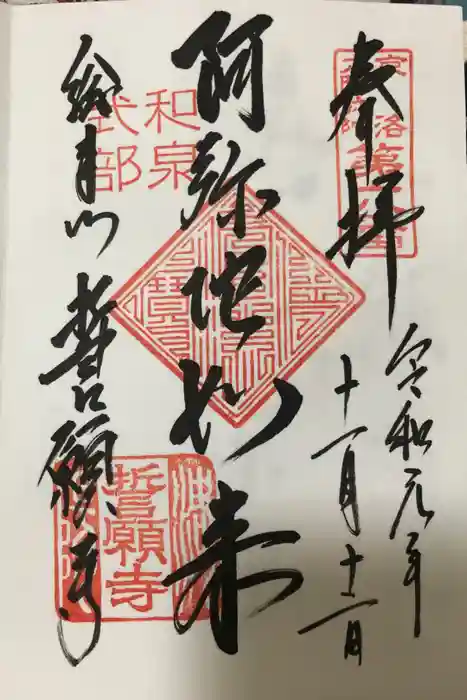 奉拝
令和元年
十一月十一日
阿弥陀如来
和泉
式部
総本山 誓願寺
誓願寺